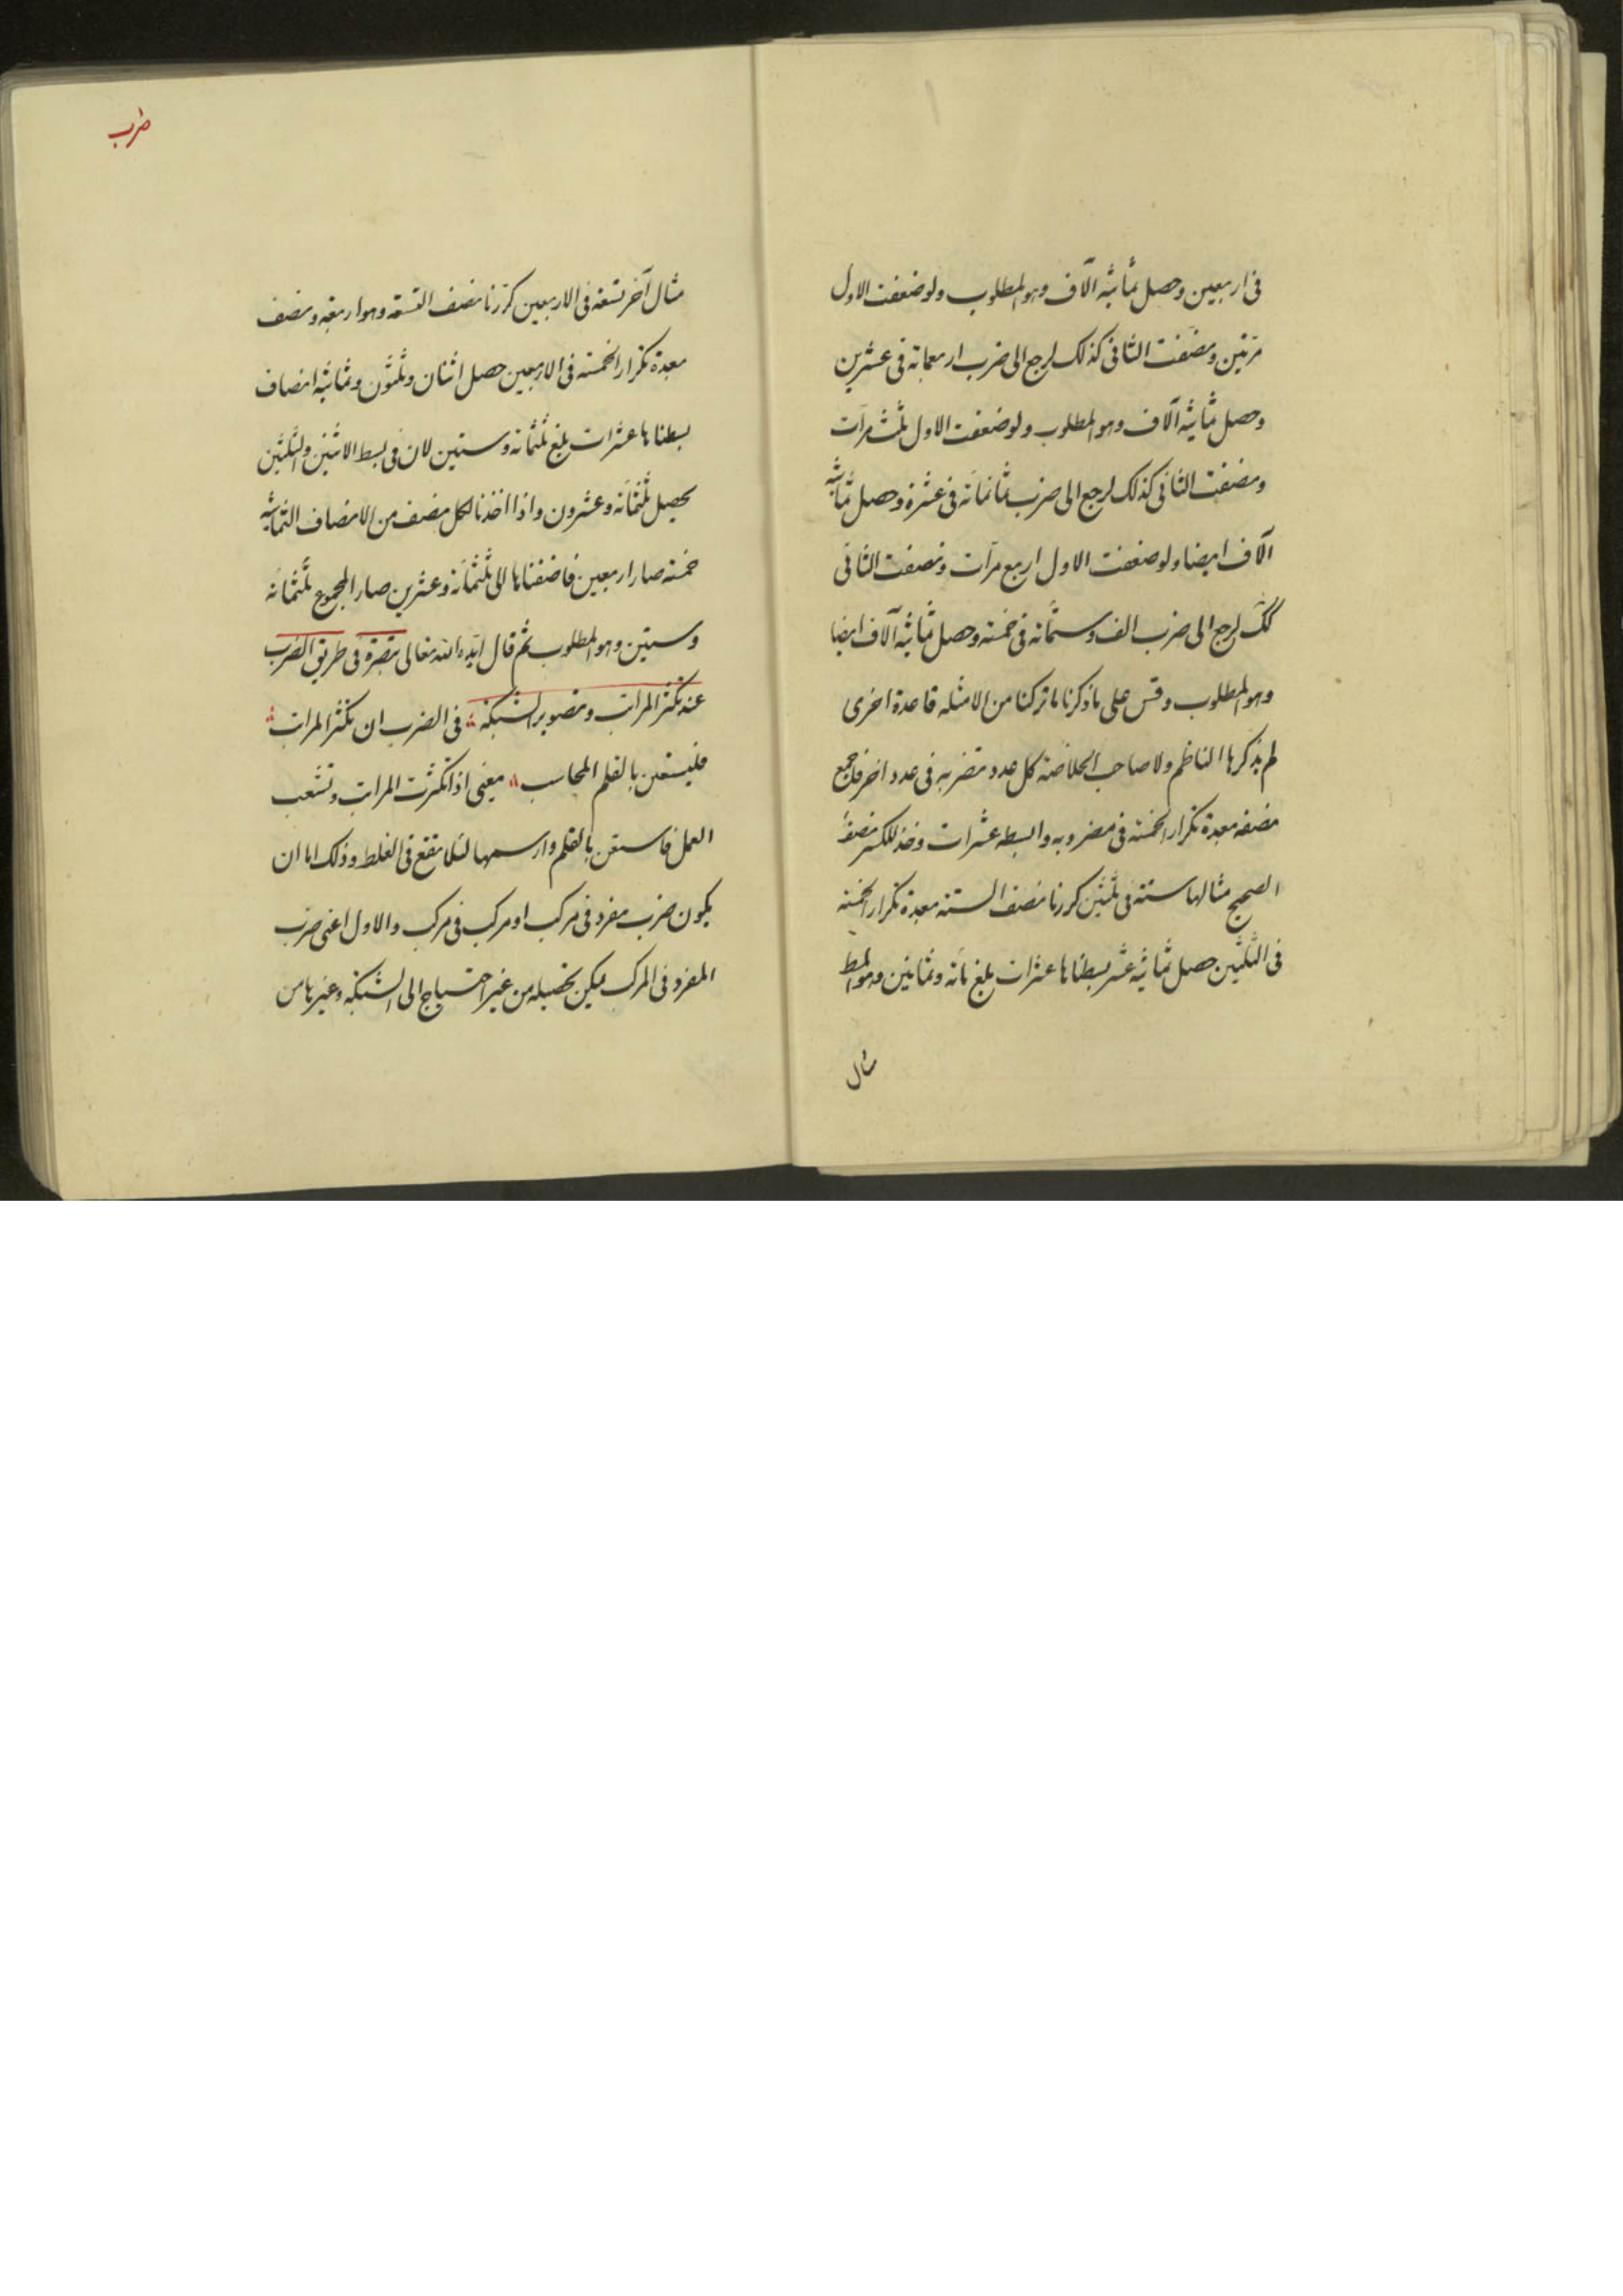 فى اربعين وحصل ثمانية آلاف وهو المطلوب ولو ضعفت الاول
مرتين ونصفت الثانى كذلك لرجع الى ضرب اربعمائة فى عشرين
وحصل ثمانية آلاف وهو المطلوب ولو ضعفت الاول ثلث مرات
ونصفت الثانى كذلك لرجع الى ضرب ثمانمائة فى عشرة وحصل ثمانية
آلاف ايضا ولو ضعفت الاول اربع مرات ونصفت الثانى
كك لرجع الى ضرب الف وستمائة فى خمسة وحصل ثمانية آلاف ايضا
وهو المطلوب وقس على ما ذكرنا ما تركنا من الامثله قاعدة اخرى
لم يذكرها الناظم ولا صاحب الخلاصة كل عدد تضربه فى عدد اخر فاجمع
نصفه بعدة تكرار الخمسة فى مضروبه وابسطه عشرات وخذ للكسر نصف
الصحيح مثالها ستة فى ثلثين كررنا نصف الستة بعدة تكرار الخمسة
فى الثلثين حصل ثمانية عشر بسطناها عشرات بلغ مائة وثمانين وهو المط
مثال
ضرب
مثال آخر تسعة فى الاربعين كررنا نصف التسعة وهو اربعة ونصف
بعدة تكرار الخمسة فى الاربعين حصل اثنان وثلثون وثمانية انصاف
بسطناها عشرات بلغ ثلثمائة وستين لان فى بسط الاثنين والثلثين
يحصل ثلثمائة وعشرون واذا اخذنا لكل نصف من الانصاف الثمانية
خمسة صار اربعين فاضفناها الى ثلثمائة وعشرين صار المجموع ثلثمائة
وستين وهو المطلوب ثم قال ايده الله تعالى تبصرة فى طريق الضرب
عند تكثر المراتب وتصوير الشبكة فى الضرب ان تكثر المراتب
فليستعن بالقلم المحاسب يعنى اذا تكثرت المراتب وتشعب
العمل فاستعن بالقلم وارسمها لئلا تقع فى الغلط وذلك اما ان
يكون ضرب مفرد فى مركب او مركب فى مركب والاول اعنى ضرب
المفرد فى المركب يمكن تحصيله من غير احتياج الى الشبكة وغيرها من